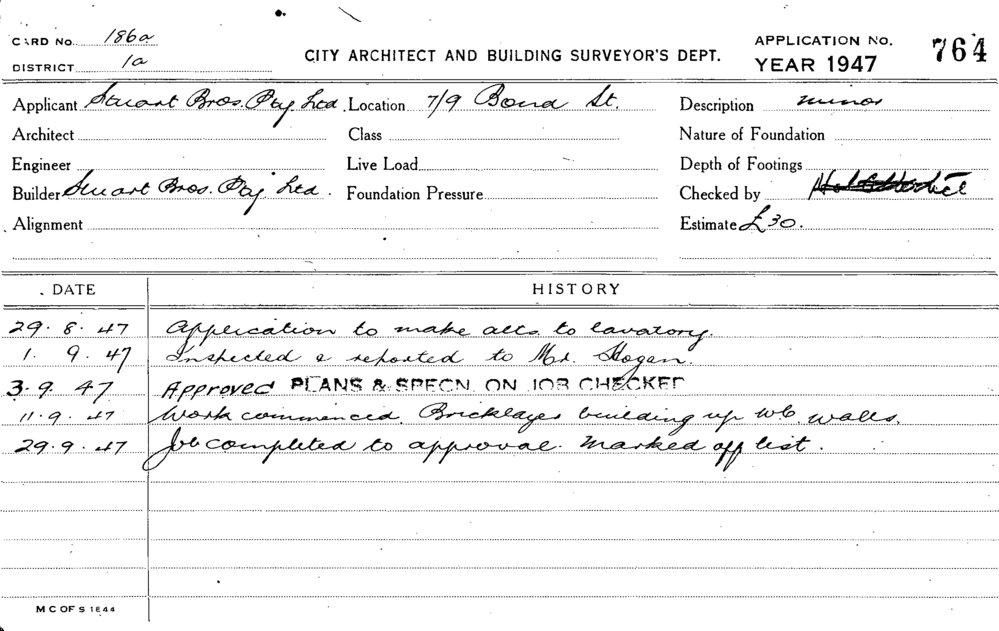 CARD No. 186a
DISTRICT 1a
CITY ARCHITECT AND BUILDING SURVEYOR'S DEPT.
APPLICATION No. 764
YEAR 1947
Applicant Stuart Bros. Pty Ltd. Location 7/9 Bond St. Description minor
Architect Class Nature of Foundation
Engineer Live Load Depth of Footings
Builder Stuart Bros. Pty Ltd. Foundation Pressure Checked by
Alignment Estimate £30.
DATE HISTORY
29. 8. 47 Application to make alts. to lavatory.
1. 9. 47 Inspected & reported to Mr. Hogan.
3. 9. 47 Approved PLANS & SPECN. ON JOB CHECKED
11. 9. 47 Work commenced. Bricklayer building up W.C. walls.
29. 9. 47 Job completed to approval. Marked off list.
M C OF S 1844